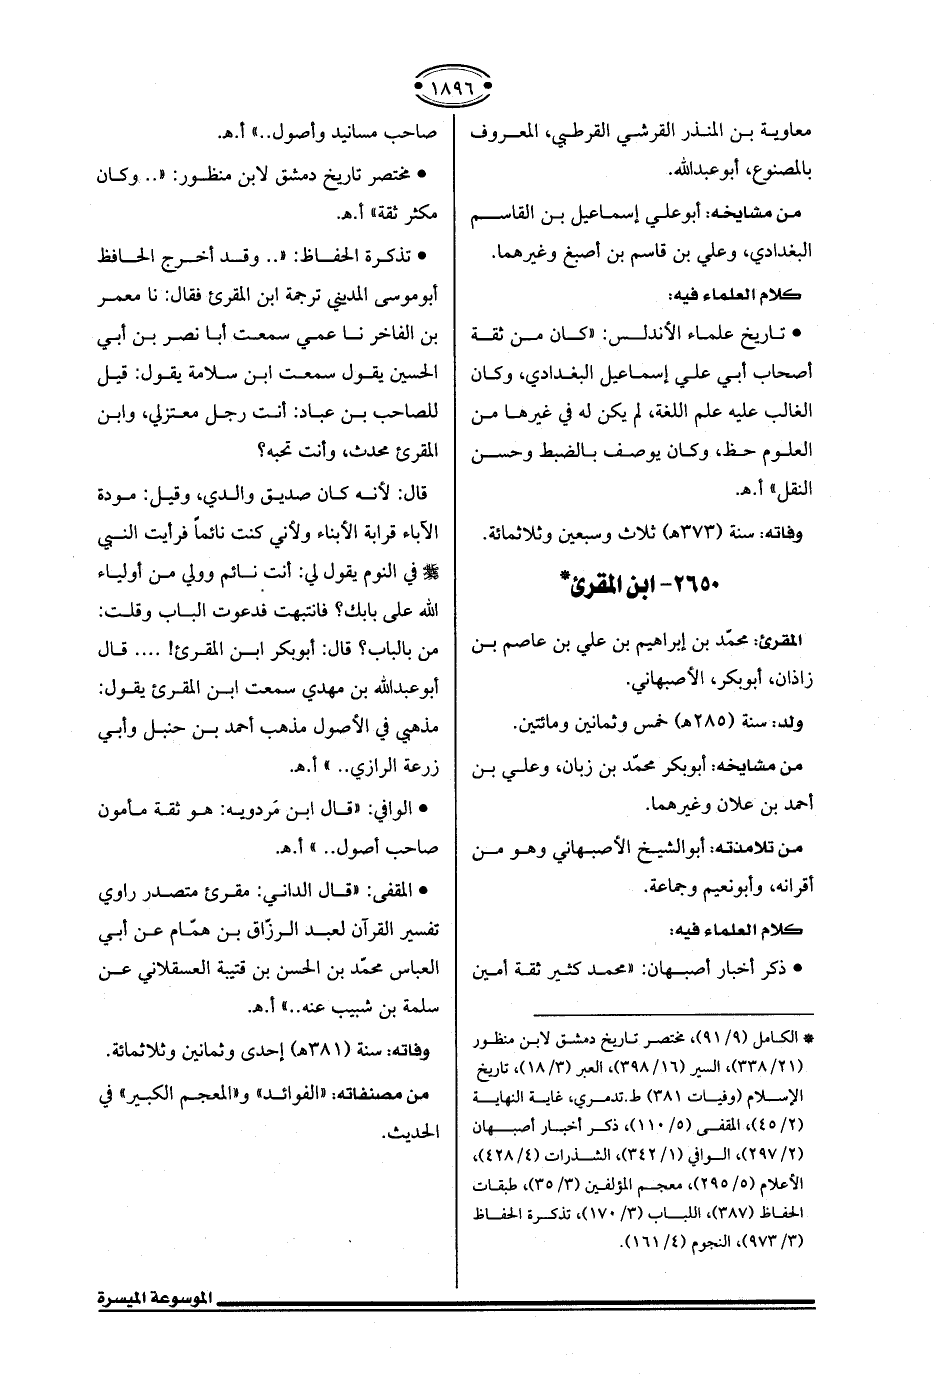 ١٨٩٦
معاوية بن المنذر القرشي القرطبي، المعروف
بالمصنوع، أبو عبدالله.
من مشايخه: أبو علي إسماعيل بن القاسم
البغدادي، وعلي بن قاسم بن أصبغ وغيرهما.
كلام العلماء فيه:
• تاريخ علماء الأندلس: «كان من ثقة
أصحاب أبي علي إسماعيل البغدادي، وكان
الغالب عليه علم اللغة، لم يكن له في غيرها من
العلوم حظ، وكان يوصف بالضبط وحسن
النقل» أ.هـ.
وفاته: سنة (٣٧٣هـ) ثلاث وسبعين وثلاثمائة.
٢٦٥٠- ابن المقرئ*
المقرئ: محمّد بن إبراهيم بن علي بن عاصم بن
زاذان، أبوبكر، الأصبهاني.
ولد: سنة (٢٨٥هـ) خمس وثمانين ومائتين.
من مشايخه: أبوبكر محمّد بن زبان، وعلي بن
أحمد بن علان وغيرهما.
من تلامذته: أبوالشيخ الأصبهاني وهو من
أقرانه، وأبونعيم وجماعة.
كلام العلماء فيه:
• ذكر أخبار أصبهان: «محمد كثير ثقة أمين
* الكامل (٩/ ٩١)، مختصر تاريخ دمشق لابن منظور
(٢١/ ٣٣٨)، السير (١٦/ ٣٩٨)، العبر (٣/ ١٨)، تاريخ
الإسلام (وفيات ٣٨١) ط.تدمري، غاية النهاية
(٢/ ٤٥)، المقفى (٥/ ١١٠)، ذكر أخبار أصبهان
(٢/ ٢٩٧)، الوافي (١/ ٣٤٢)، الشذرات (٤/ ٤٢٨)،
الأعلام (٥/ ٢٩٥)، معجم المؤلفين (٣/ ٣٥)، طبقات
الحفاظ (٣٨٧)، اللباب (٣/ ١٧٠)، تذكرة الحفاظ
(٣/ ٩٧٣)، النجوم (٤/ ١٦١).
صاحب مسانيد وأصول..» أ.هـ.
• مختصر تاريخ دمشق لابن منظور: «.. وكان
مكثر ثقة» أ.هـ.
• تذكرة الحفاظ: «.. وقد أخرج الحافظ
أبوموسى المديني ترجمة ابن المقرئ فقال: نا معمر
بن الفاخر نا عمي سمعت أبا نصر بن أبي
الحسين يقول سمعت ابن سلامة يقول: قيل
للصاحب بن عباد: أنت رجل معتزلي، وابن
المقرئ محدث، وأنت تحبه؟
قال: لأنه كان صديق والدي، وقيل: مودة
الآباء قرابة الأبناء ولأني كنت نائماً فرأيت النبي
ﷺ في النوم يقول لي: أنت نائم وولي من أولياء
الله على بابك؟ فانتبهت فدعوت الباب وقلت:
من بالباب؟ قال: أبوبكر ابن المقرئ! .... قال
أبوعبدالله بن مهدي سمعت ابن المقرئ يقول:
مذهبي في الأصول مذهب أحمد بن حنبل وأبي
زرعة الرازي.. » أ.هـ.
• الوافي: «قال ابن مَردويه: هو ثقة مأمون
صاحب أصول.. » أ.هـ.
• المقفى: «قال الداني: مقرئ متصدر راوي
تفسير القرآن لعبد الرزّاق بن همّام عن أبي
العباس محمّد بن الحسن بن قتيبة العسقلاني عن
سلمة بن شبيب عنه..» أ.هـ.
وفاته: سنة (٣٨١هـ) إحدى وثمانين وثلاثمائة.
من مصنفاته: «الفوائد» و«المعجم الكبير» في
الحديث.
الموسوعة الميسرة